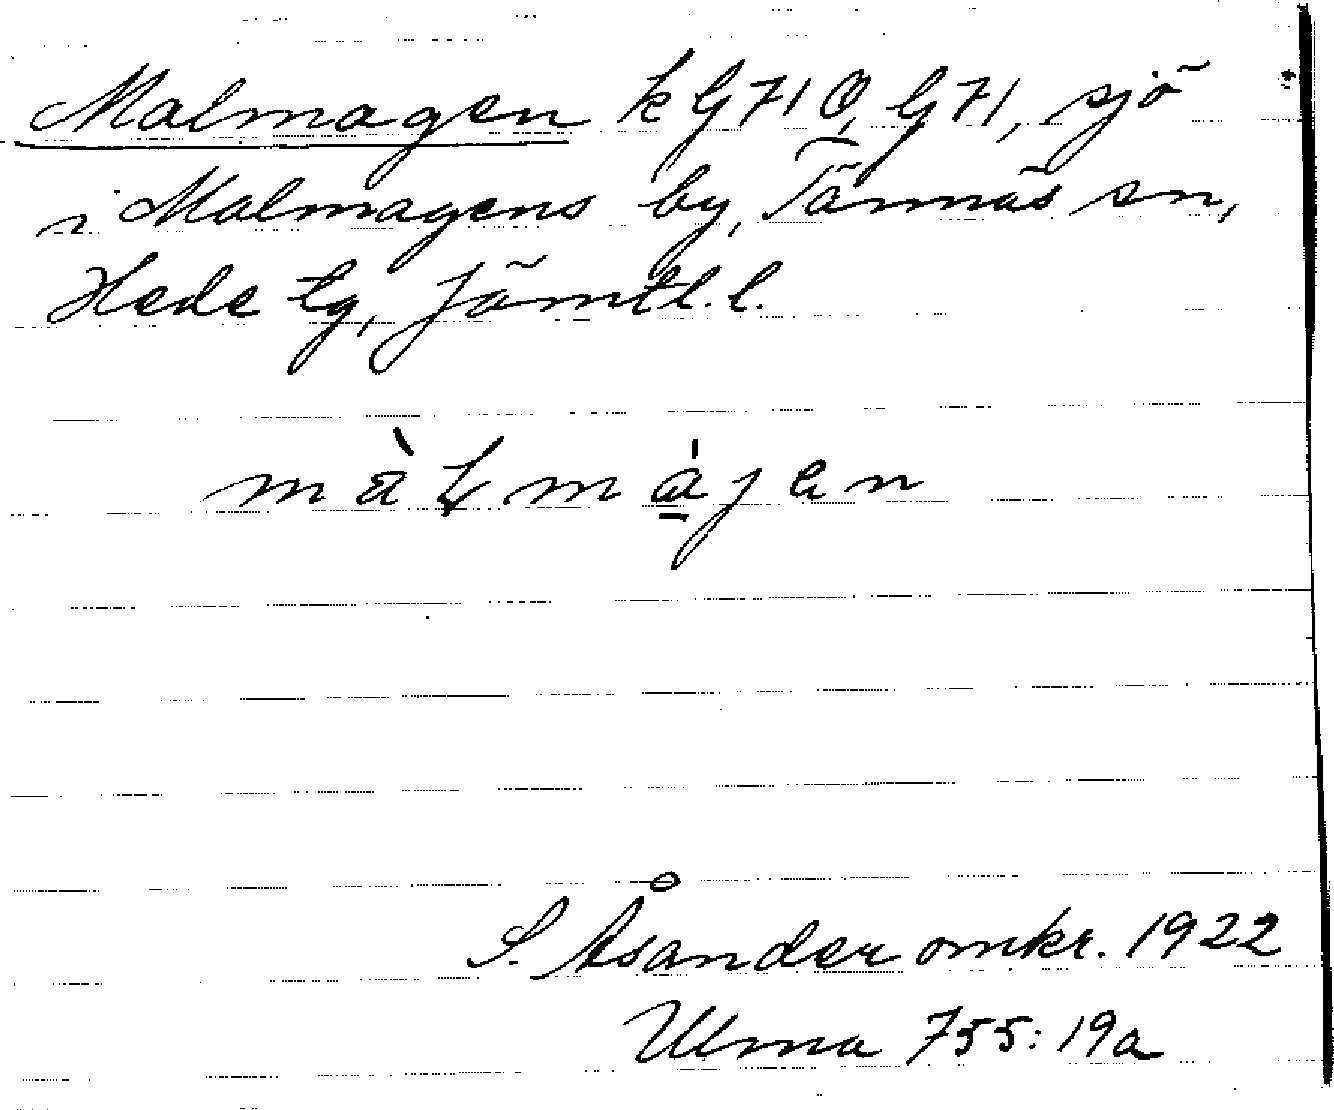 Malmagen k G 71 Ö, G 71, sjö
i Malmagens by, Tännäs sn,
Hede tg, Jämtl. l.
màɫmájen
S. Åsander omkr. 1922
Ulma 755: 19a